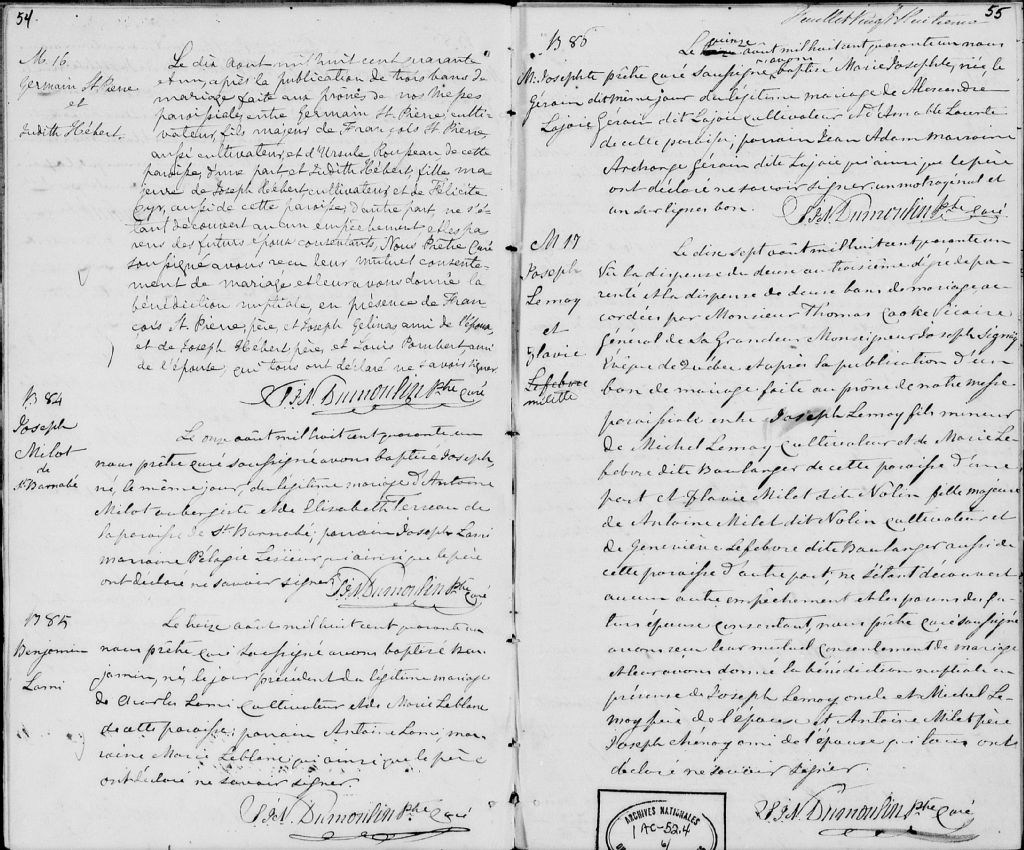 54
M 16
Germain St Pierre
et
Judith Hébert.
Le dix Aout mil huit cent quarante
et un, après la publication de trois bans de
mariage faite aux prônes de nos Messes
paroissiales, entre Germain St Pierre, culti
vateur, fils majeur de François St Pierre,
aussi cultivateur, et d'Ursule Rousseau de cette
paroisse, d'une part, et Judith Hébert, fille ma
jeure de Joseph Hébert cultivateur et de Félicite
Cyr, aussi de cette paroisse, d'autre part, ne s'é-
tant découvert aucun empêchement et les pa
rens des futurs époux consentants, Nous Prêtre Curé
soussigné avons reçu leur mutuel consente-
ment de mariage et leur avons donné la
bénédiction nuptiale, en présence de Fran
çois St. Pierre, père, et Joseph Gelinas ami de l'époux,
et de Joseph Hébert, père, et Louis Lambert, ami
de l'épouse, qui tous ont déclaré ne savoir signer
S. N. Dumoulin Ptre Curé
B 84
Joseph
Milot
de
St Barnabé
Le onze août mil huit cent quarante un
nous prêtre curé soussigné avons baptisé Joseph,
né, le même jour, du légitime mariage d'Antoine
Milot aubergiste et de Elisabeth Ferron de
la paroisse de St Barnabé, parrain Joseph Lami
marraine Pélagie Lesieur qui ainsi que le père
ont déclaré ne savoir signer.
S. N. Dumoulin Ptre Curé
B 85
Benjamin
Lami
Le treize août mil huit cent quarante un
nous prêtre curé soussigné avons baptisé Ben
jamin, né, le jour précédent du légitime mariage
de Charles Lami cultivateur et de Marie Leblanc
de cette paroisse; parrain Antoine Lami, mar
raine Marie Leblanc qui ainsi que le père
ont déclaré ne savoir signer.
S. N. Dumoulin Ptre Curé
Feuillet vingt huitième
55
B 86
M. Josephte
Gérain dit
Lajoie
Le quinze août mil huit cent quarante un nous
prêtre curé soussigné avons baptisé Marie Josephte, née, le
même jour du légitime mariage de Alexandre
Gérain dit Lajoie cultivateur et d'Amable
de cette paroisse, parrain Jean Adam marraine
Archange Gérain dite Lajoie qui ainsi que le père
ont déclaré ne savoir signer un mot rayé nul et
un sur lignes bon.
S. N. Dumoulin Ptre Curé.
M 17
Joseph
Lemay
et
Flavie
Lefebvre
milette
Le dix sept août mil huit cent quarante un
Vu la dispense du deux au troisième dégré de pa-
renté et la dispense de deux bans de mariage ac-
cordées par Monsieur Thomas Cooke Vicaire
Général de Sa Grandeur Monseigneur Joseph Signay
Évêque de Québec et après la publication d'un
ban de mariage faite au prône de notre messe
paroissiale entre Joseph Lemay fils mineur
de Michel Lemay cultivateur et de Marie Le-
febvre dite Boulanger de cette paroisse d'une
part et Flavie Milet dite Nolin fille majeure
de Antoine Milet dit Nolin cultivateur et
de Geneviève Lefebvre dite Boulanger aussi de
cette paroisse d'autre part, ne s'étant découvert
aucun autre empêchement et les parens du fu-
turs épouse consentant, nous prêtre curé soussigné
avons reçu leur mutuel consentement de mariage
et leur avons donné la bénédiction nuptiale en
présence de Joseph Lemay oncle et Michel Le-
may père de l'époux et Antoine Milet père
Joseph Chénay ami de l'épouse qui tous ont
declaré ne savoir signer.
S. N. Dumoulin Ptre Curé
ARCHIVES NATIONALES
1 AC-52.4
6/